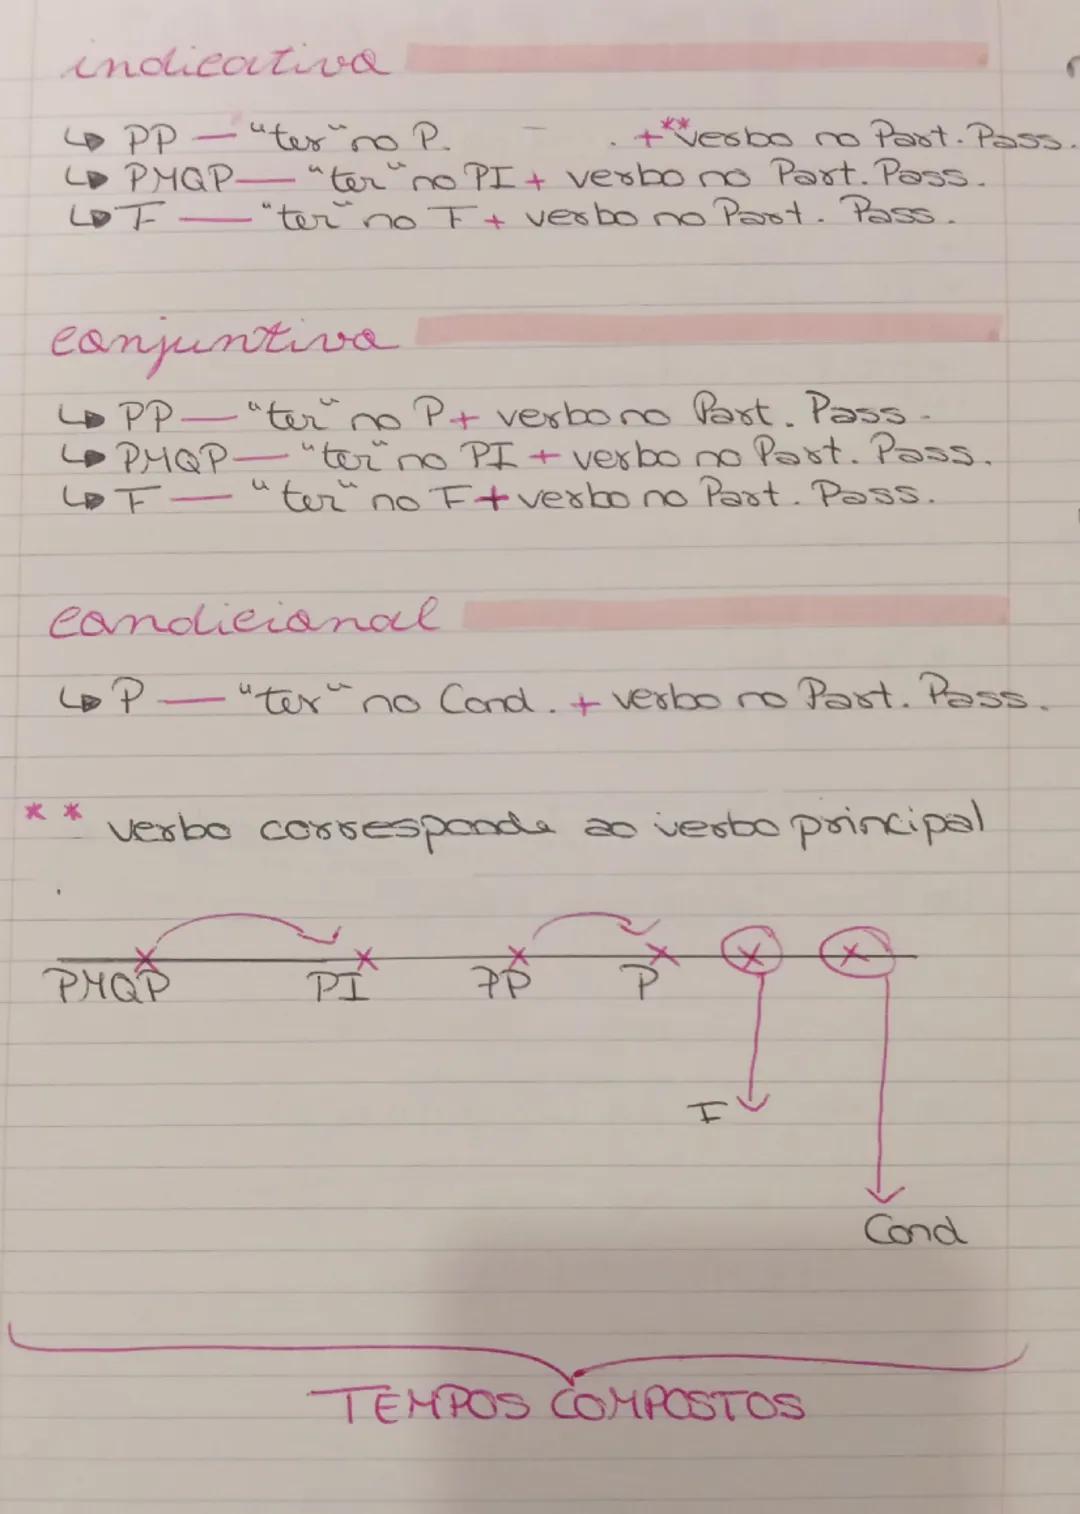 indicativo
↳ PP — "ter" no P. + **verbo no Part. Pass.
↳ PMQP — "ter" no PI + verbo no Part. Pass.
↳ F — "ter" no F + verbo no Part. Pass.
conjuntivo
↳ PP — "ter" no P + verbo no Part. Pass.
↳ PMQP — "ter" no PI + verbo no Part. Pass.
↳ F — "ter" no F + verbo no Part. Pass.
condicional
↳ P — "ter" no Cond. + verbo no Part. Pass.
** verbo corresponde ao verbo principal
PMQP PI PP P
F
Cond
TEMPOS COMPOSTOS